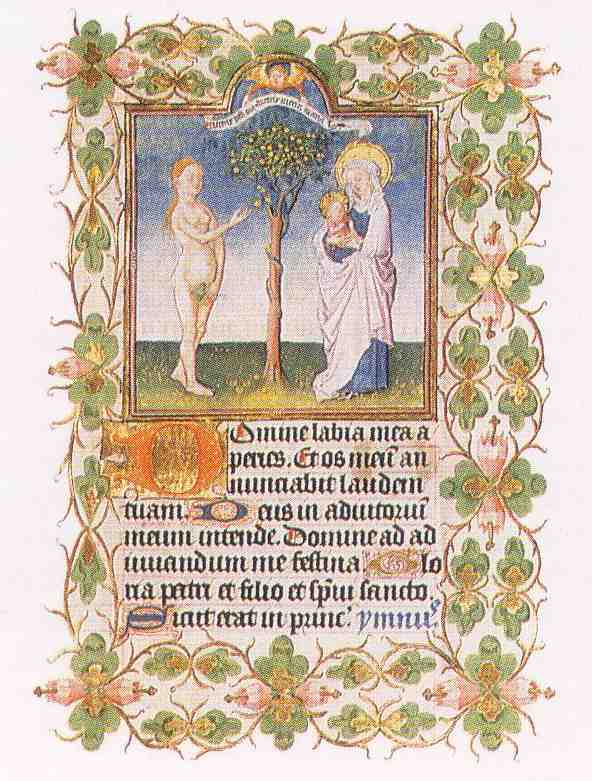 Domine labia mea a
peries. Et os meū an
nunciabit laudem
tuam. Deus in adiutoriū
meum intende. Domine ad ad
iuuandum me festina Glo
ria patri et filio et sp̄ui sancto.
Sicut erat in princ' ymnus